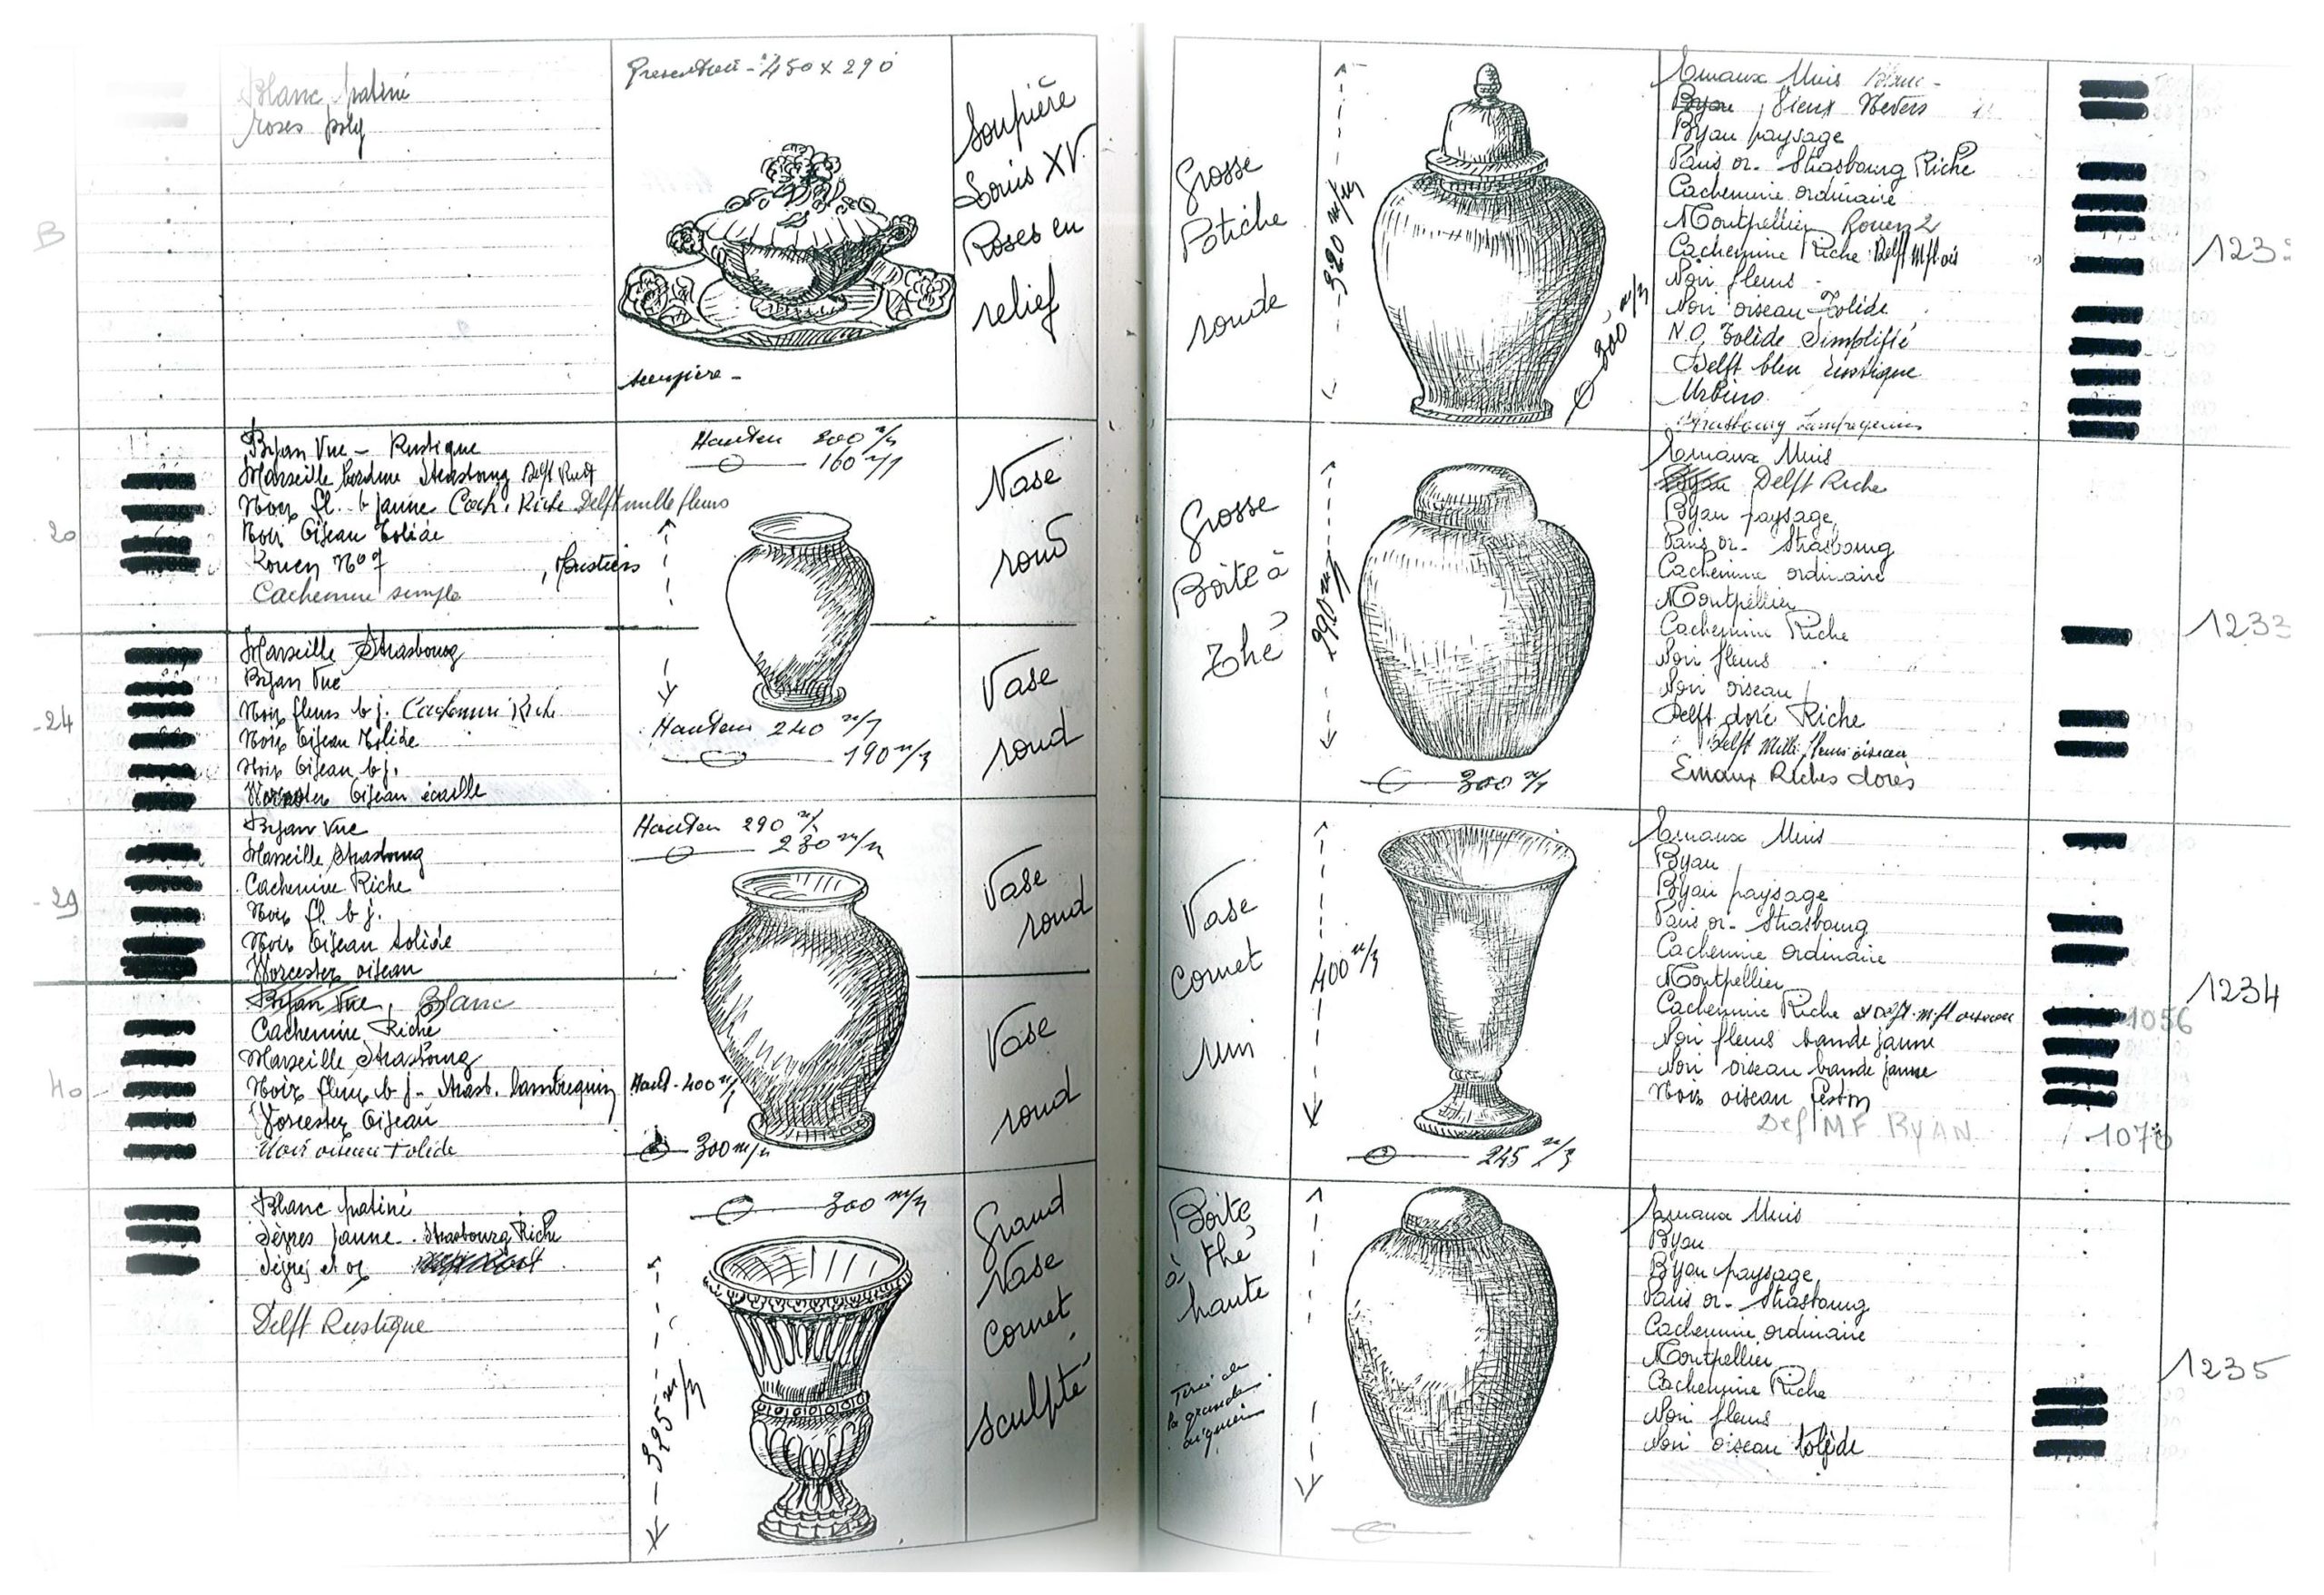 Blanc patiné
roses poly
Presentoir - 450 x 290
soupière -
Soupière
Louis XV
Roses en
relief
B
Byan Vue - Rustique
Marseille bordure Strasbourg Delft Rust
Noir fl. b jaune Cach. Riche Delft mille fleurs
Noir Oiseau Tolède
Rouen N° 7 , Moustiers
Cachemire simple
Hauteur 200 m/m
160 m/m
Vase
rond
20
Marseille Strasbourg
Byan Vue
Noir fleurs b j. Cachemire Riche
Noir Oiseau Tolède
Noir Oiseau b j.
Worcester Oiseau écaille
Hauteur 240 m/m
190 m/m
Vase
rond
24
Byan Vue
Marseille Strasbourg
Cachemire Riche
Noir fl. b j.
Noir Oiseau tolède
Worcester oiseau
Hauteur 290 m/m
230 m/m
Vase
rond
29
Byan Vue, Blanc
Cachemire Riche
Marseille Strasbourg
Noir fleurs b j - Strasb. lambrequin
Worcester Oiseau
Noir oiseau tolède
Haut - 400 m/m
300 m/m
Vase
rond
40
Blanc patiné
Sèvres jaune - Strasbourg Riche
Sèvres et or
Delft Rustique
300 m/m
325 m/m
Grand
Vase
Cornet
sculpté
Grosse
Potiche
ronde
520 m/m
300 m/m
Emaux Unis Blanc -
Byan, Vieux Nevers
Byan paysage
Paris or - Strasbourg Riche
Cachemire ordinaire
Montpellier Rouen 2
Cachemire Riche Delft M fl ois
Noir fleurs
Noir oiseau Tolède
N.O. Tolède Simplifié
Delft bleu rustique
Urbino
Strasbourg Lambrequins
123
Grosse
Boite à
Thé
290 m/m
300 m/m
Emaux Unis
Byan Delft Riche
Byan paysage
Paris or - Strasbourg
Cachemire ordinaire
Montpellier
Cachemire Riche
Noir fleurs
Noir oiseau
Delft doré Riche
Delft Mille fleurs oiseau
Emaux Riches dorés
1233
Vase
Cornet
uni
400 m/m
245 m/m
Emaux Unis
Byan
Byan paysage
Paris or - Strasbourg
Cachemire ordinaire
Montpellier
Cachemire Riche et Delft m. fl oiseau
Noir fleurs bande jaune
Noir oiseau bande jaune
Noir oiseau feston
Delf MF BYAN
1056
1234
Boite
à thé
haute
Tirée de
la grande
Emaux Unis
Byan
Byan paysage
Paris or - Strasbourg
Cachemire ordinaire
Montpellier
Cachemire Riche
Noir fleurs
Noir oiseau tolède
1235